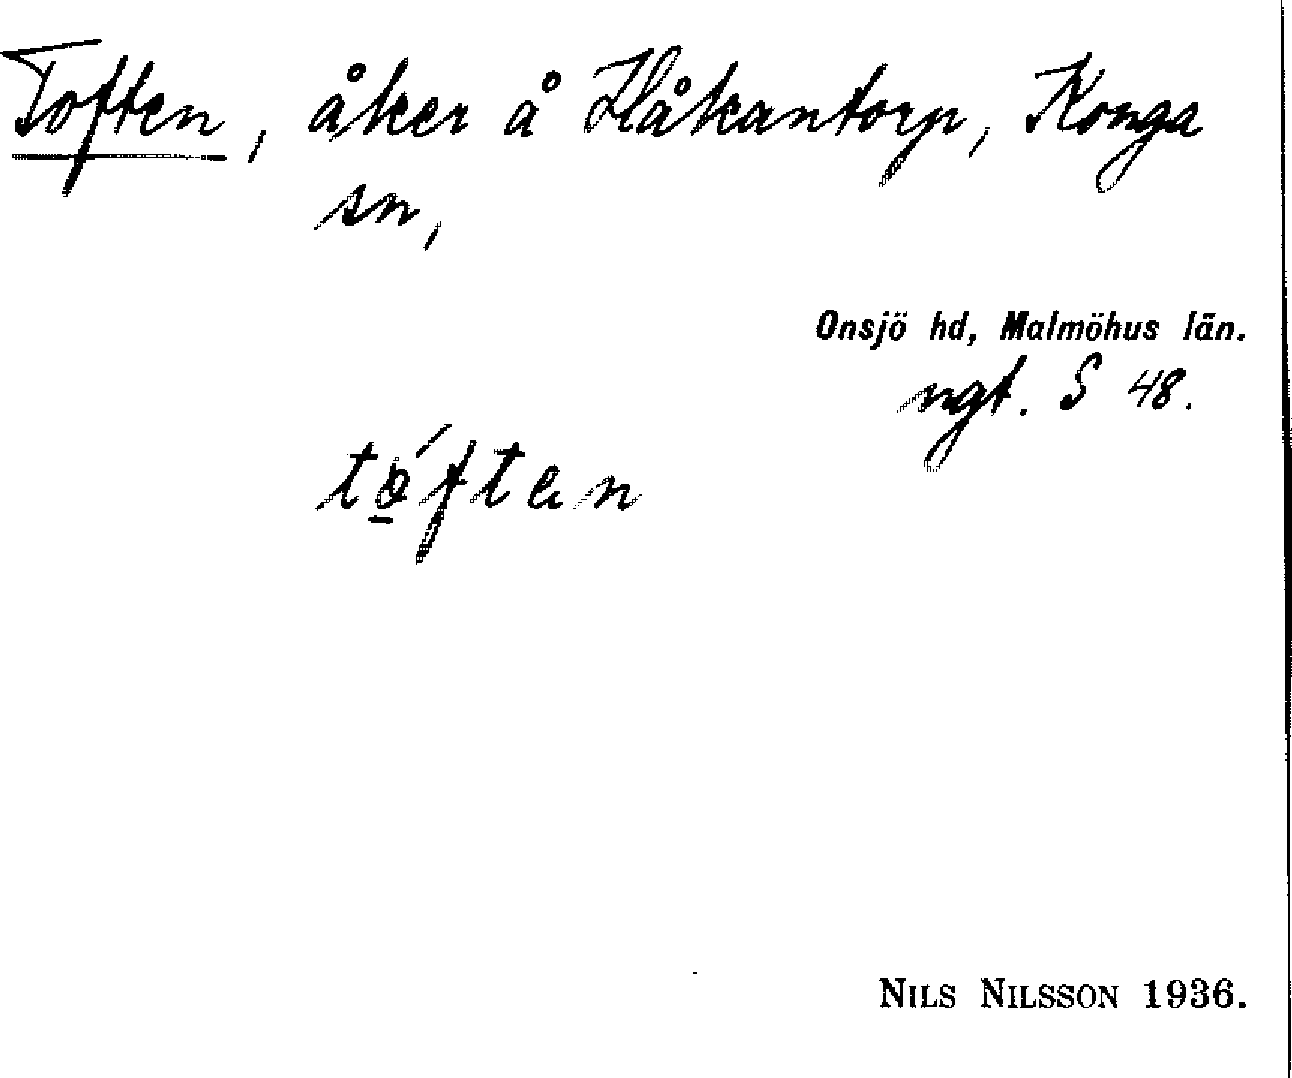 Toften, åker å Håkantorp, Konga
sn,
Onsjö hd, Malmöhus län.
ngt. S 48.
to̠´ften
NILS NILSSON 1936.